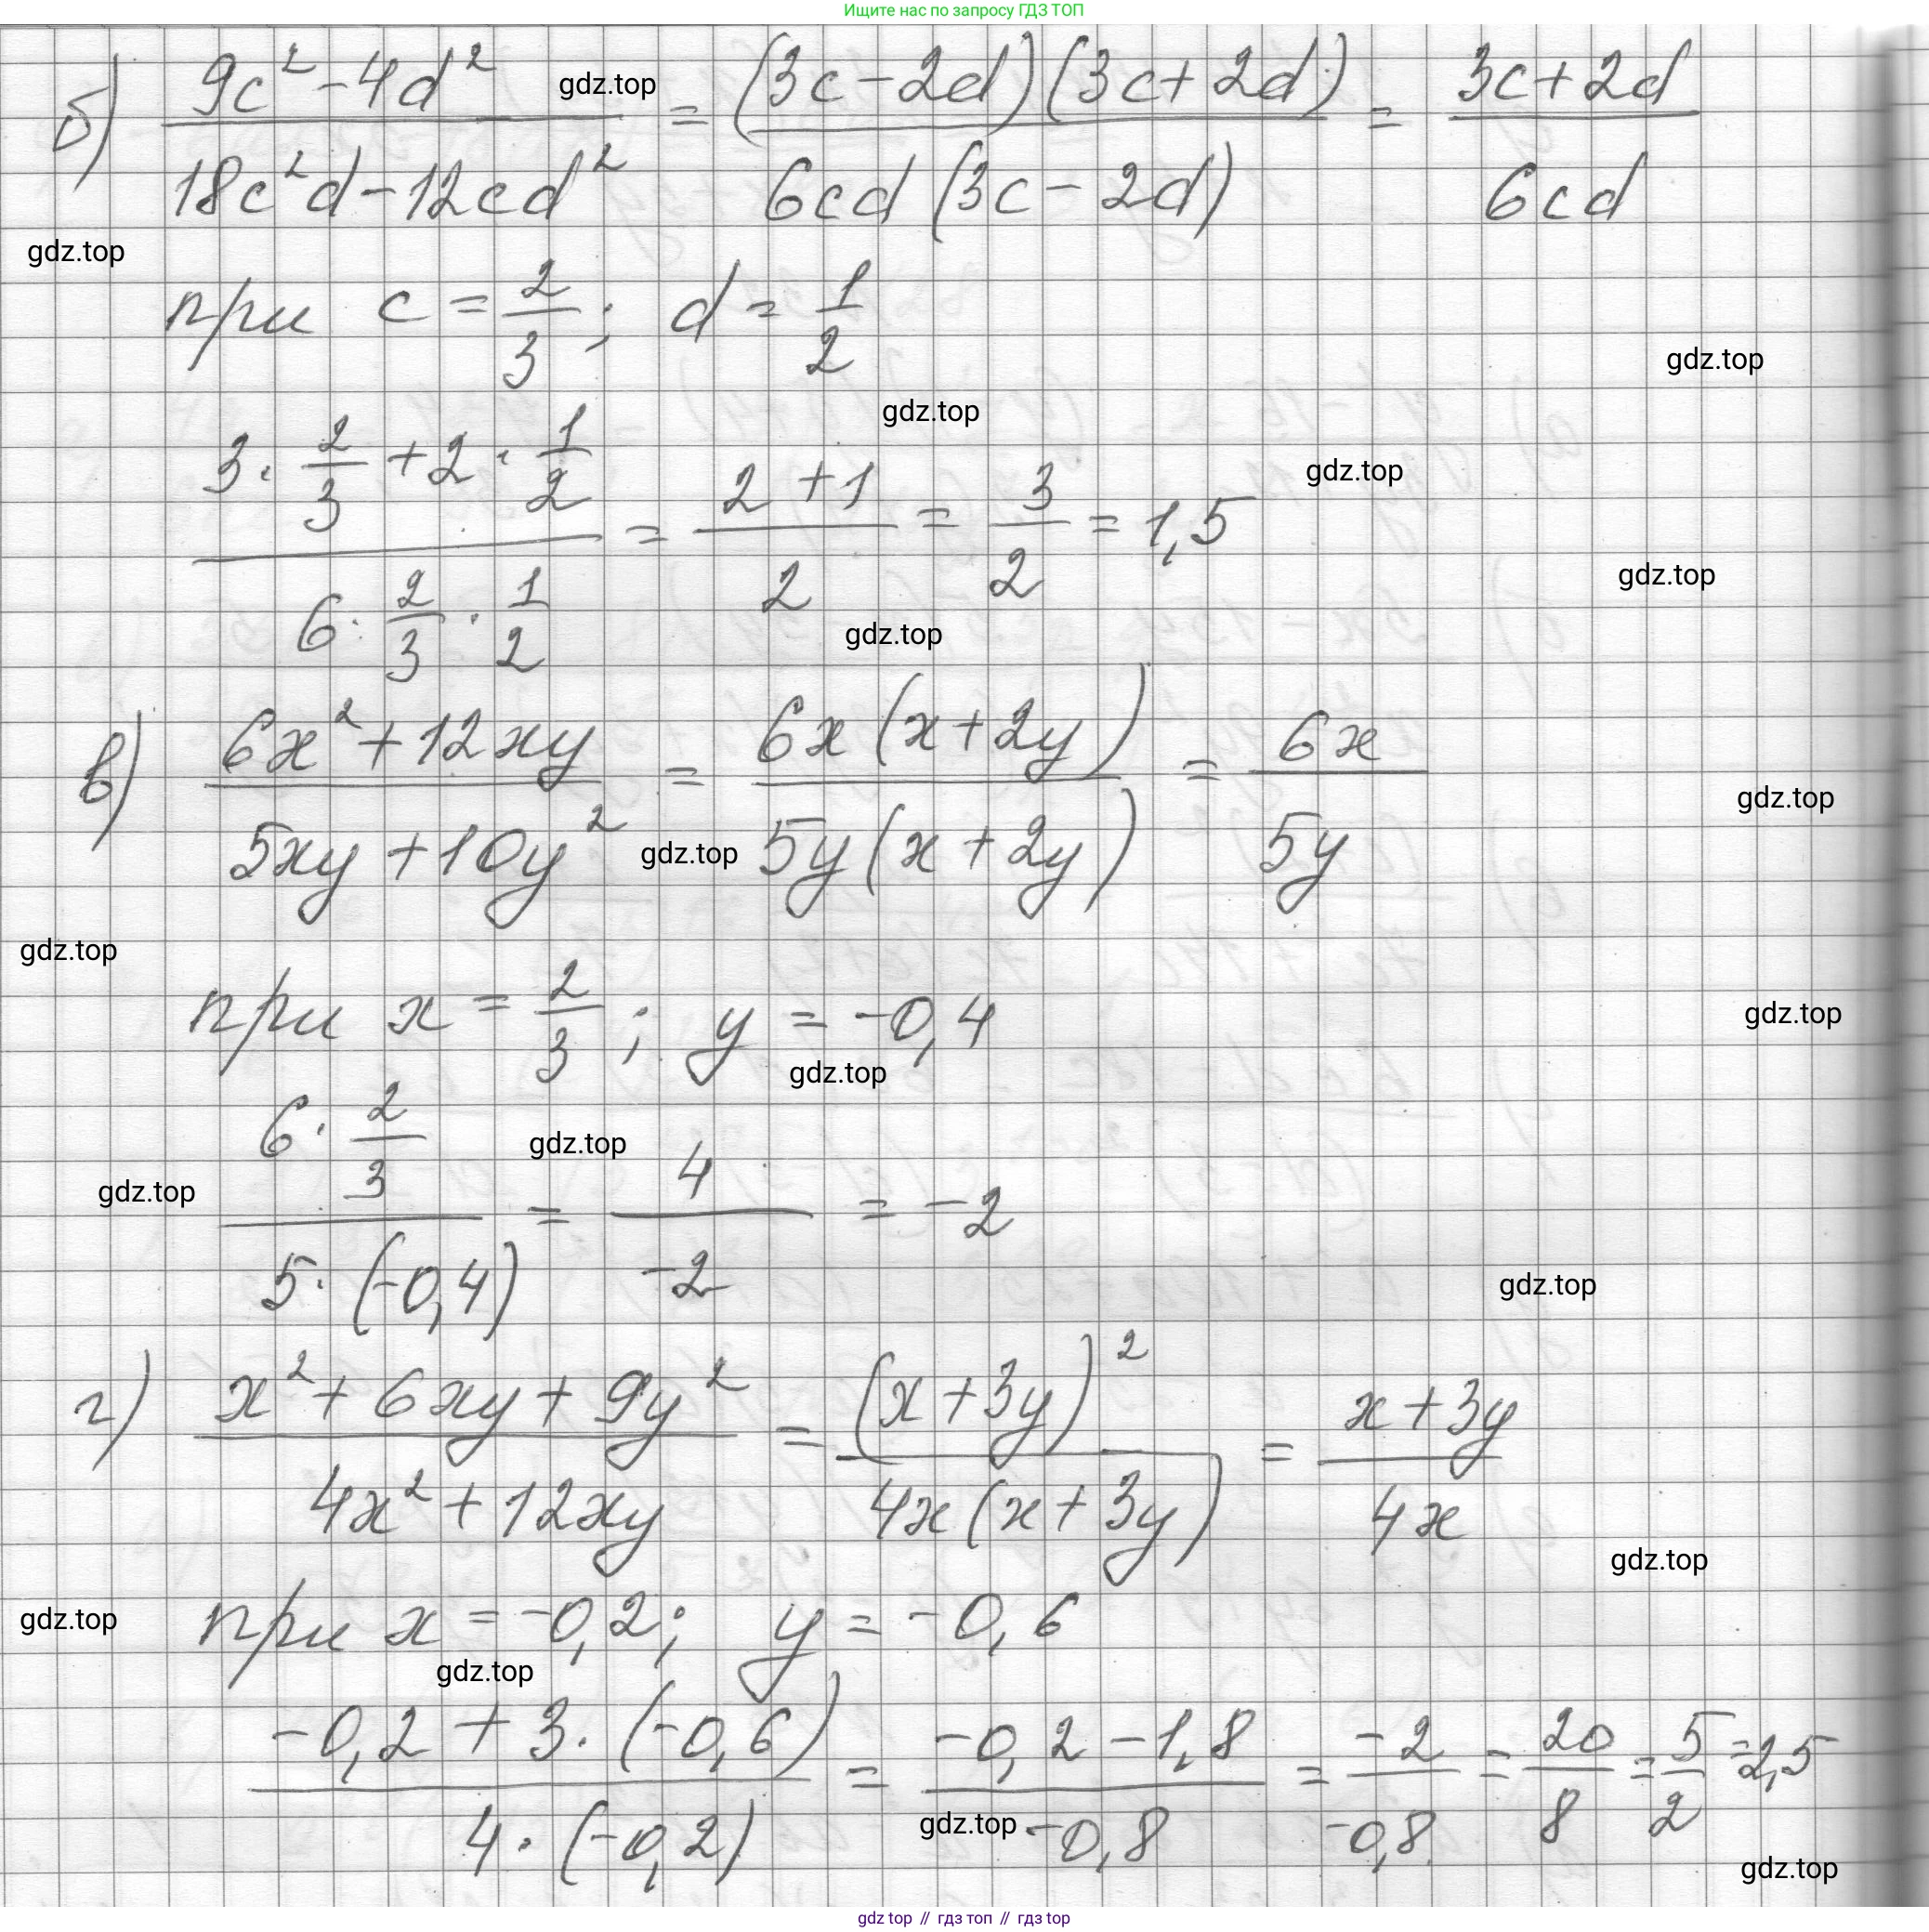 Ищите нас по запросу ГДЗ ТОП
б) (9c² - 4d²)/(18c²d - 12cd²) = ((3c - 2d)(3c + 2d))/(6cd(3c - 2d)) = (3c + 2d)/(6cd)
gdz.top
gdz.top
при c = 2/3; d = 1/2
gdz.top
gdz.top
(3 · 2/3 + 2 · 1/2)/(6 · 2/3 · 1/2) = (2 + 1)/2 = 3/2 = 1,5
gdz.top
gdz.top
gdz.top
в) (6x² + 12xy)/(5xy + 10y²) = (6x(x + 2y))/(5y(x + 2y)) = 6x/5y
gdz.top
gdz.top
gdz.top
при x = 2/3; y = -0,4
gdz.top
gdz.top
(6 · 2/3)/(5 · (-0,4)) = 4/-2 = -2
gdz.top
gdz.top
gdz.top
г) (x² + 6xy + 9y²)/(4x² + 12xy) = (x + 3y)²/(4x(x + 3y)) = (x + 3y)/4x
gdz.top
при x = -0,2; y = -0,6
gdz.top
gdz.top
(-0,2 + 3 · (-0,6))/(4 · (-0,2)) = (-0,2 - 1,8)/-0,8 = -2/-0,8 = 20/8 = 5/2 = 2,5
gdz.top
gdz.top
gdz top // гдз топ // гдз top